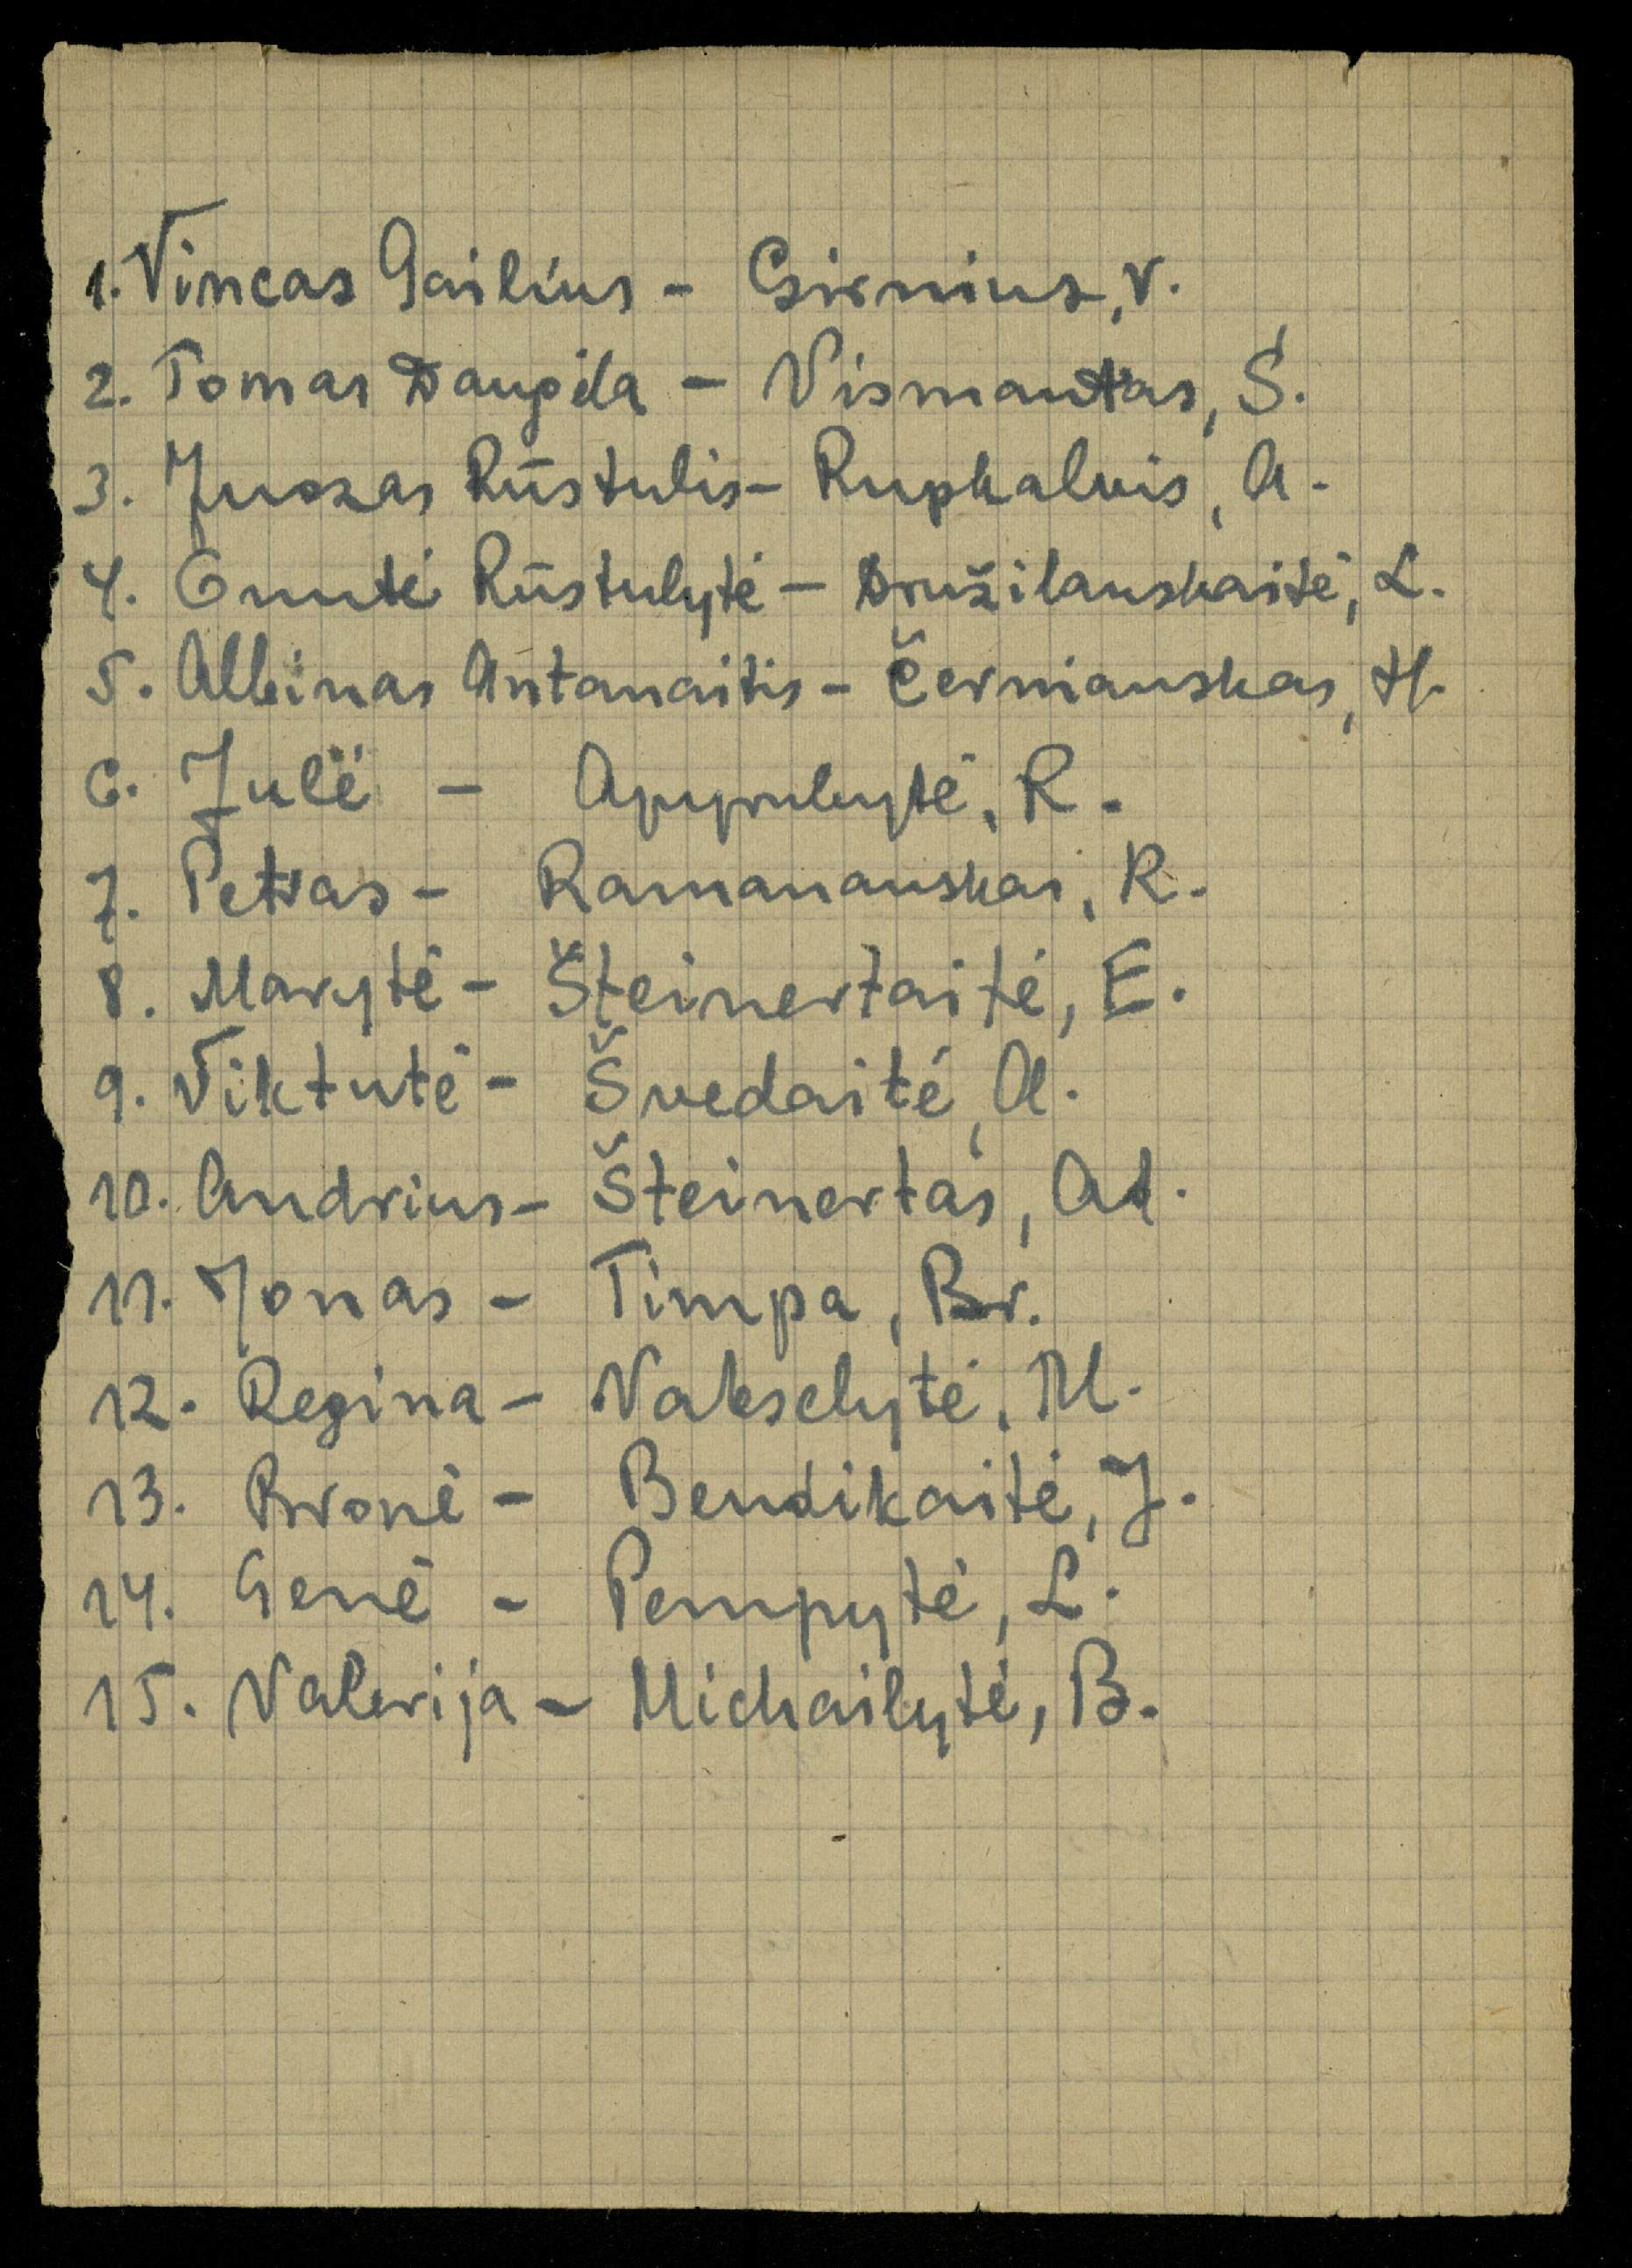 1. Vincas Gailius - Girnius, V.
2. Tomas Daugėla - Vismantas, S.
3. Juozas Rūstulis - Rupkalvis, A.
4. Onutė Rūstulytė - Družilauskaitė, L.
5. Albinas Antanaitis - Černiauskas, H.
6. Julė - R.
7. Petras - Ramanauskas, R.
8. Marytė - Šteinertaitė, E.
9. Viktutė - Švedaitė, A.
10. Andrius - Šteinertas, Ad.
11. Jonas - Timpa, Br.
12. Regina - Vakselytė, M.
13. Bronė - Bendikaitė, J.
14. Genė - Pempytė, L.
15. Valerija - Michailytė, B.